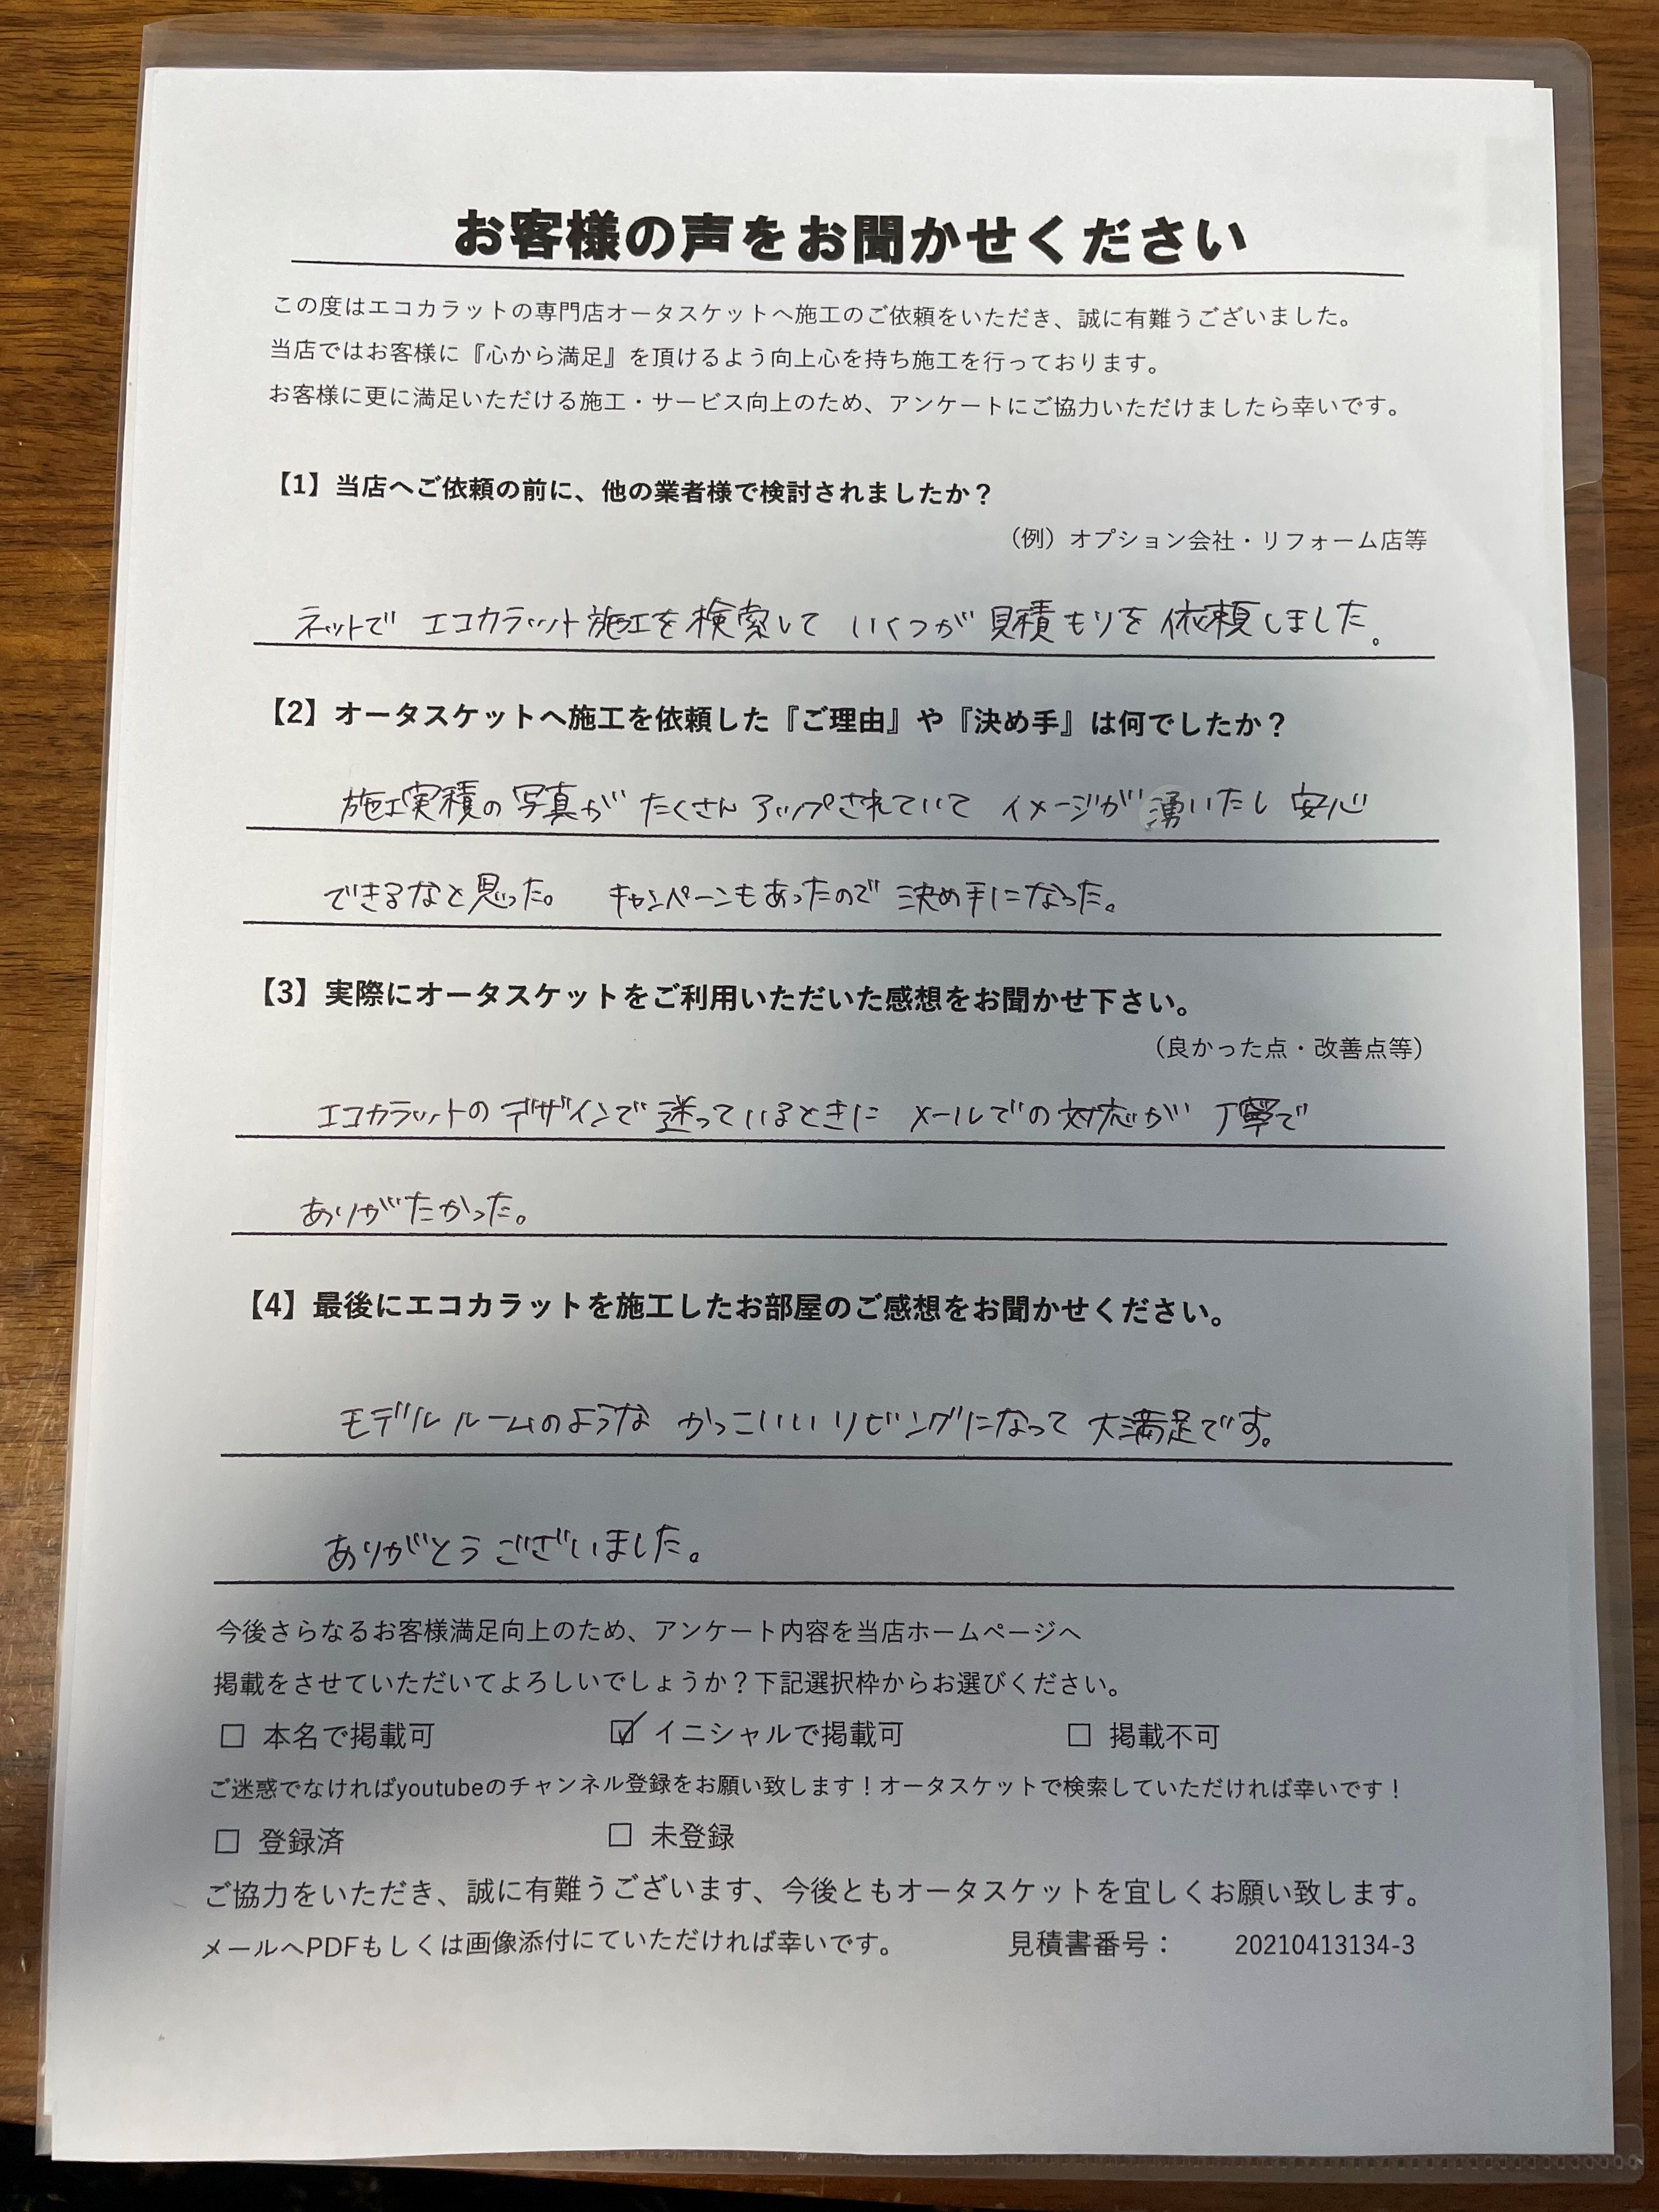 お客様の声をお聞かせください
この度はエコカラットの専門店オータスケットへ施工のご依頼をいただき、誠に有難うございました。
当店ではお客様に『心から満足』を頂けるよう向上心を持ち施工を行っております。
お客様に更に満足いただける施工・サービス向上のため、アンケートにご協力いただけましたら幸いです。
【1】当店へご依頼の前に、他の業者様で検討されましたか？
（例）オプション会社・リフォーム店等
ネットで エコカラット施工を検索して いくつが 見積もりを 依頼しました。
【2】オータスケットへ施工を依頼した『ご理由』や『決め手』は何でしたか？
施工実積の写真が たくさん アップされていて イメージが 湧いたし 安心
できるなと思った。 キャンペーンもあったので 決め手になった。
【3】実際にオータスケットをご利用いただいた感想をお聞かせ下さい。
（良かった点・改善点等）
エコカラットの デザインで 迷っているときに メールでの対応が 丁寧で
ありがたかった。
【4】最後にエコカラットを施工したお部屋のご感想をお聞かせください。
モデルルームのような かっこいい リビングになって 大満足です。
ありがとうございました。
今後さらなるお客様満足向上のため、アンケート内容を当店ホームページへ
掲載をさせていただいてよろしいでしょうか？下記選択枠からお選びください。
□ 本名で掲載可 ☑ イニシャルで掲載可 □ 掲載不可
ご迷惑でなければyoutubeのチャンネル登録をお願い致します！オータスケットで検索していただければ幸いです！
□ 登録済 □ 未登録
ご協力をいただき、誠に有難うございます、今後ともオータスケットを宜しくお願い致します。
メールへPDFもしくは画像添付にていただければ幸いです。 見積書番号： 20210413134-3